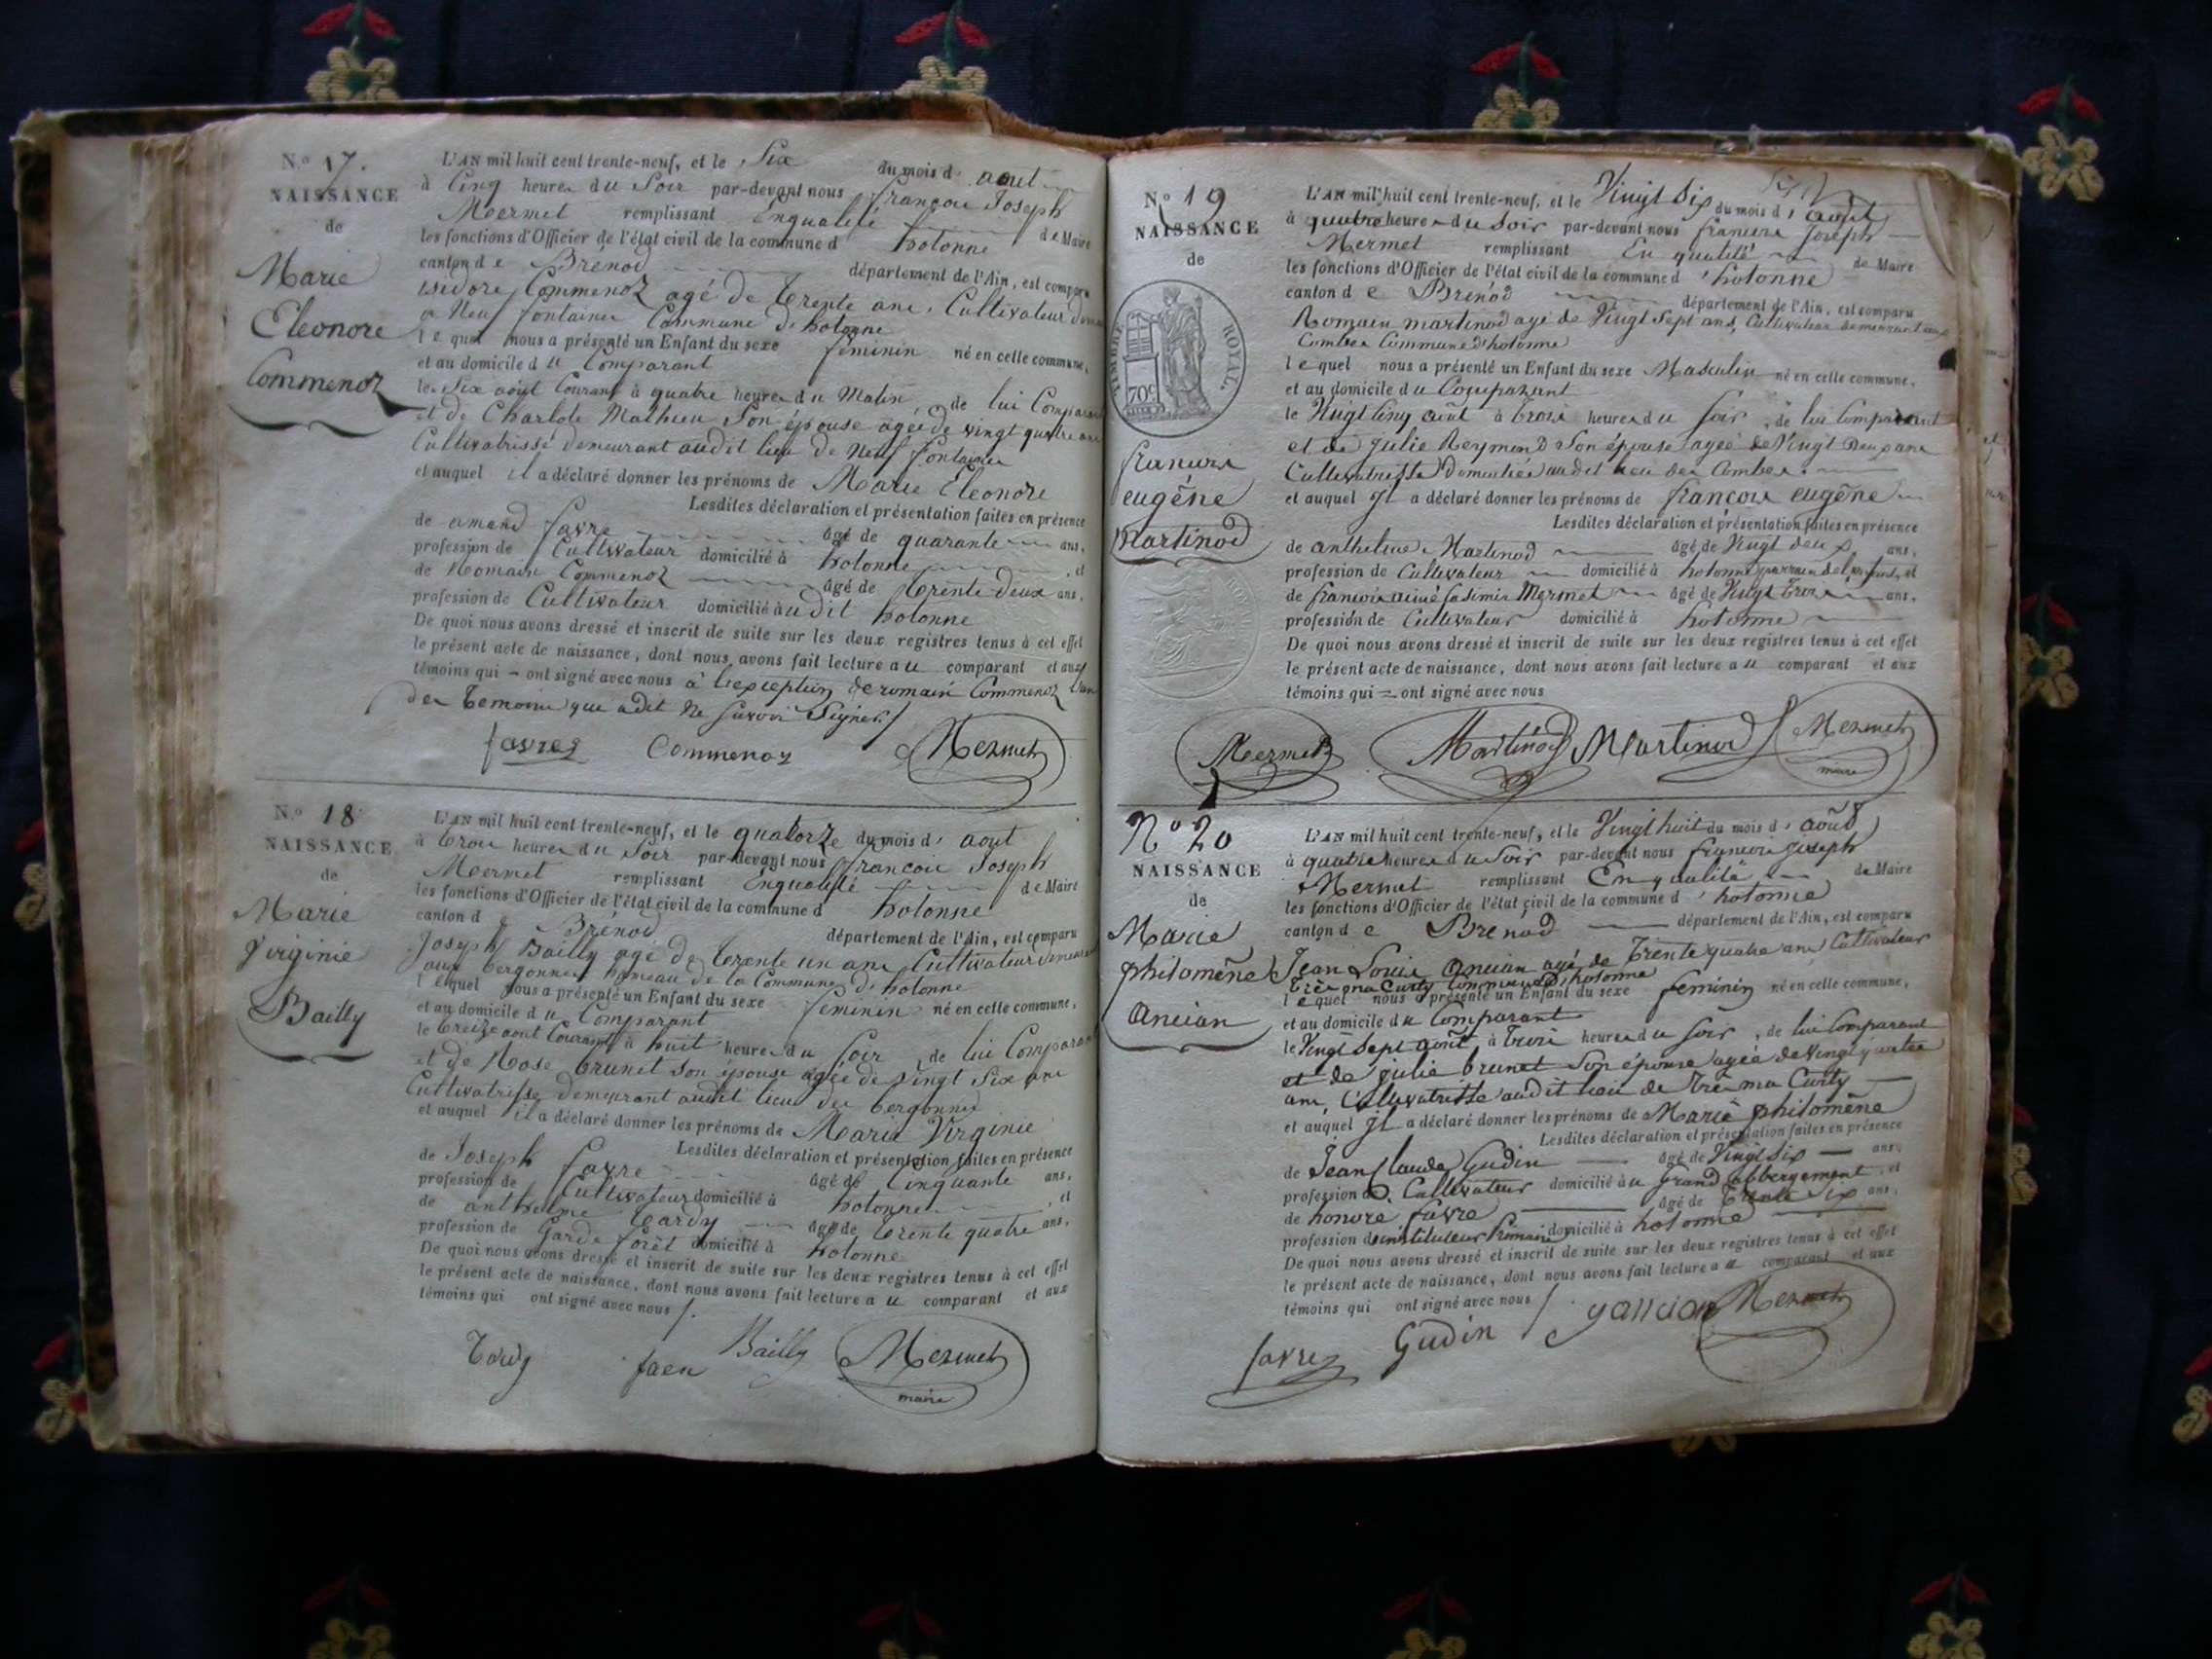 N.º 17.
NAISSANCE
de
Marie
Eleonore
Commenoz
L'AN mil huit cent trente-neuf, et le Six du mois d aout
à Cinq heures du Soir par-devant nous françois Joseph
Mermet remplissant Enqualité de Maire
les fonctions d'Officier de l'état civil de la commune d hotonne
canton de Brénod département de l'Ain, est comparu
isidore Commenoz agé de trente ans, Cultivateur
a Neuf fontaines Commune d'hotonne
lequel nous a présenté un Enfant du sexe féminin né en cette commune,
et au domicile du Comparant
le Six août Courant à quatre heures du Matin, de lui Comparant
et de Charlote Mathieu Son épouse agée de vingt quatre ans
Cultivatrisse demeurant audit lieu de Neuf fontaines
et auquel il a déclaré donner les prénoms de Marie Eleonore
Lesdites déclaration et présentation faites en présence
de amand favre âgé de quarante ans,
profession de Cultivateur domicilié à hotonne, et
de Romain Commenoz âgé de trente deux ans,
profession de Cultivateur domicilié audit hotonne
De quoi nous avons dressé et inscrit de suite sur les deux registres tenus à cet effet
le présent acte de naissance, dont nous avons fait lecture au comparant et aux
témoins qui ont signé avec nous à l'exception de romain Commenoz l'un
des temoins que a dit Ne savoir Signer
favre Commenoz Mermet
N.º 18
NAISSANCE
de
Marie
Virginie
Bailly
L'AN mil huit cent trente-neuf, et le quatorze du mois d' aout
à trois heures du Soir par-devant nous françois Joseph
Mermet remplissant Enqualité de Maire
les fonctions d'Officier de l'état civil de la commune d hotonne
canton de Brénod département de l'Ain, est comparu
Joseph Bailly agé de trente un ans Cultivateur demeurant
aux bergonnes hameau de la Commune d'hotonne
lequel nous a présenté un Enfant du sexe féminin né en cette commune,
et au domicile du Comparant
le treize aout Courant à huit heures du Soir, de lui Comparant
et de Rose brunet son épouse agée de Vingt Six ans
Cultivatrisse demeurant audit lieu des bergonnes
et auquel il a déclaré donner les prénoms de Marie Virginie
Lesdites déclaration et présentation faites en présence
de Joseph favre âgé de Cinquante ans,
profession de Cultivateur domicilié à hotonne, et
de anthelme tardy âgé de trente quatre ans,
profession de Garde forêt domicilié à hotonne
De quoi nous avons dressé et inscrit de suite sur les deux registres tenus à cet effet
le présent acte de naissance, dont nous avons fait lecture au comparant et aux
témoins qui ont signé avec nous
Bailly Mermet
maire
N.º 19
NAISSANCE
de
TIMBRE ROYAL.
70c
francois
eugêne
Martinod
L'AN mil huit cent trente-neuf, et le Vingt Six du mois d' août
à quatre heures du Soir par-devant nous francois Joseph
Mermet remplissant En qualité de Maire
les fonctions d'Officier de l'état civil de la commune d' hotonne
canton de Brénod département de l'Ain, est comparu
Romain martinod agé de Vingt Sept ans, Cultivateur demeurant aux
Combes Commune d'hotonne
lequel nous a présenté un Enfant du sexe Masculin né en cette commune,
et au domicile du Comparant
le Vingt Cinq août à trois heures du Soir, de lui Comparant
et de Julie Reymond Son épouse agée de Vingt Deux ans
Cultivatrisse Domiciliée audit lieu des Combes.
et auquel Il a déclaré donner les prénoms de françois eugêne
Lesdites déclaration et présentation faites en présence
de anthelme Martinod âgé de Vingt deux ans,
profession de Cultivateur domicilié à hotonne parrain de l'enfant, et
de francois aimé Casimir Mermet âgé de Vingt trois ans,
profession de Cultivateur domicilié à hotonne
De quoi nous avons dressé et inscrit de suite sur les deux registres tenus à cet effet
le présent acte de naissance, dont nous avons fait lecture au comparant et aux
témoins qui ont signé avec nous
Mermet Martinod Martinod Mermet
maire
Nº 20
NAISSANCE
de
Marie
philomêne
Ancian
L'AN mil huit cent trente-neuf, et le Vingt huit du mois d' août
à quatre heures du Soir par-devant nous francois Joseph
Mermet remplissant En qualité de Maire
les fonctions d'Officier de l'état civil de la commune d' hotonne
canton de Brénod département de l'Ain, est comparu
Jean Louis Ancian agé de trente quatre ans Cultivateur
très ma Curty Commune d'hotonne
lequel nous a présenté un Enfant du sexe feminin né en cette commune,
et au domicile du Comparant
le Vingt Sept août, à trois heures du Soir, de lui Comparant
et de julie brunet Son épouse agée de Vingt quatre
ans, Cultivatrisse audit lieu de très ma Curty
et auquel Il a déclaré donner les prénoms de Marie philomêne
Lesdites déclaration et présentation faites en présence
de Jean Claude Gudin âgé de Vingt Six ans,
profession de Cultivateur domicilié au Grand Abbergement, et
de honore favre âgé de trente Six ans,
profession d'instituteur Primaire domicilié à hotonne
De quoi nous avons dressé et inscrit de suite sur les deux registres tenus à cet effet
le présent acte de naissance, dont nous avons fait lecture au comparant et aux
témoins qui ont signé avec nous
favre Gudin Mermet